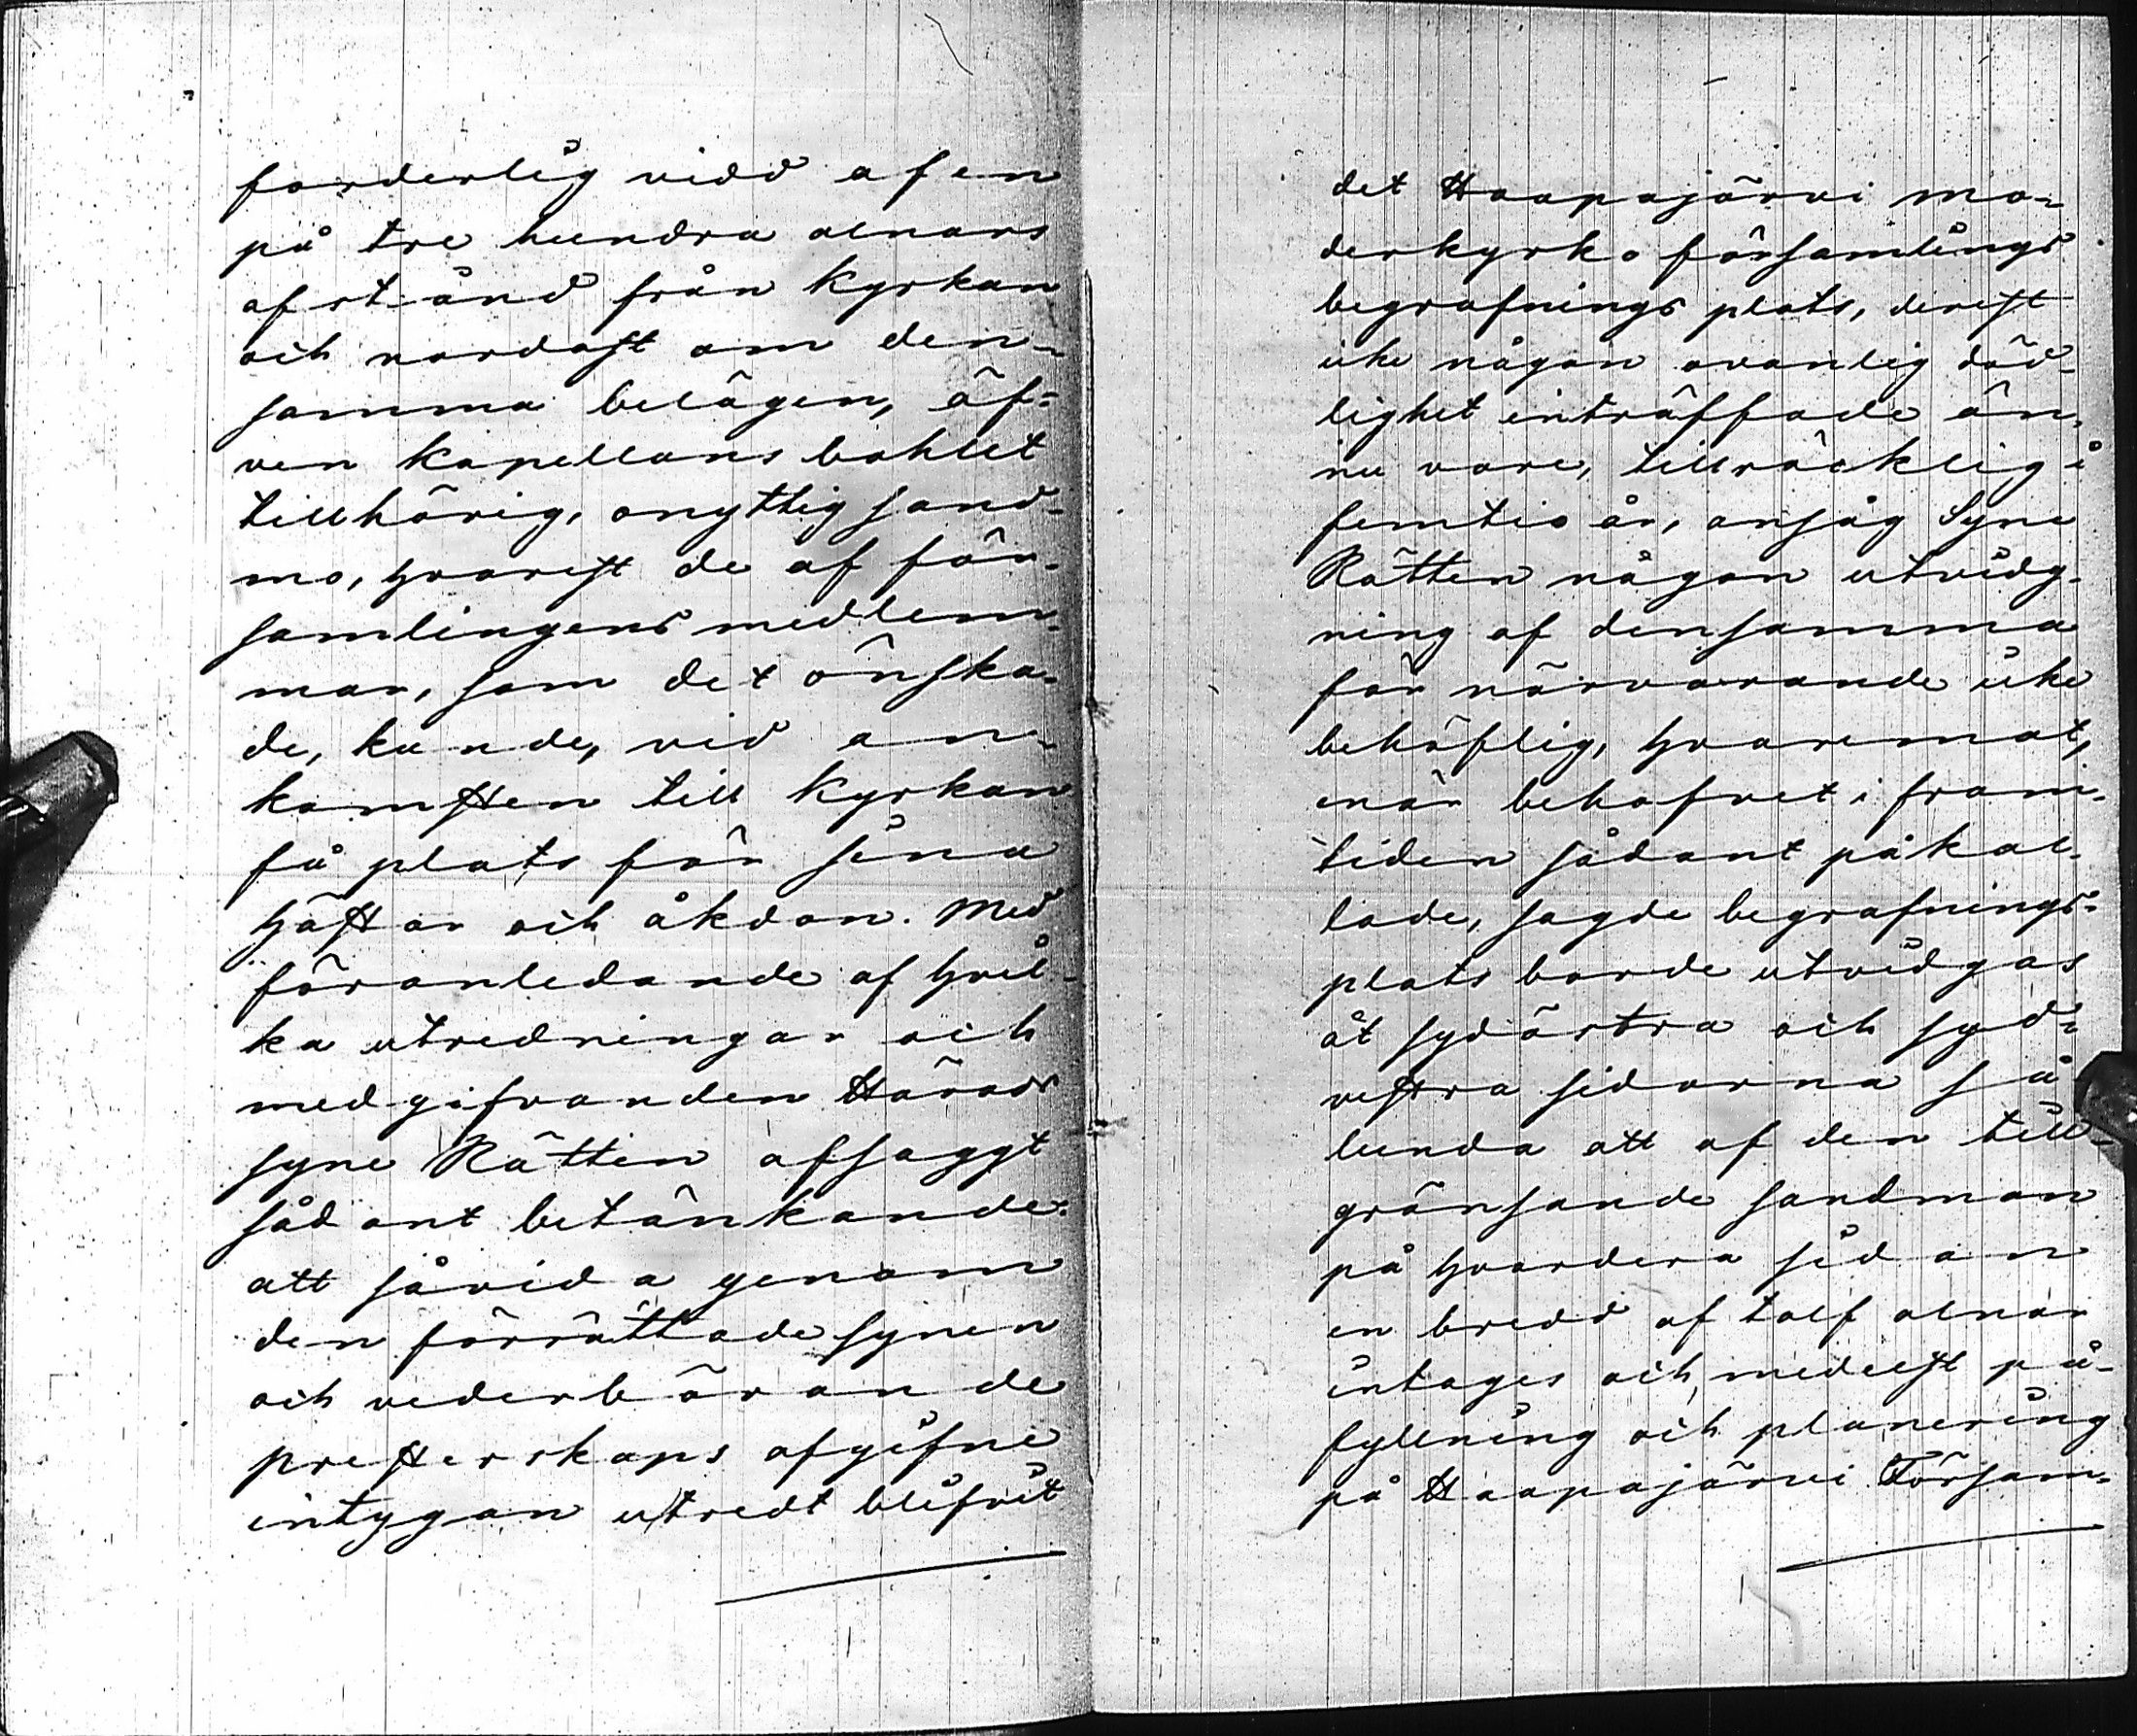 forderlig vidd af en
på tre hundra alnars
afstånd från Kyrkan
och nordost om den-
samma belägen, äf-
ven kapellans bohlet
tillhörig, onyttig sand-
mo, hvarest de af för-
samlingens medlem-
mar, som det önska-
de, kunde, vid an-
komsten till Kyrkan
få plats för sina
hästar och åkdon. Med
föranledande af hvil-
ka utredningar och
medgifvanden Härads
syne Rätten afsaggt
sådant betänkande:
att såvida genom
den förrättade synen
och vederbörande
presterskaps afgifne
intygan utredt blifvit
det Haapajärvi mo-
derkyrko församlings
begrafnings plats, derest
icke någon ovanlig död-
lighet inträffade än-
nu vore, tillräcklig i
femtio år, ansåg Syne
Rätten någon utvidg-
ning af densamma
för närvarande icke
behöflig, hvaremot,
enär behofvet i fram-
tiden sådant påkal-
lade, sagde begrafnings-
plats borde utvidgas
åt sydöstra och syd-
vestra sidorna så-
lunda att af den till-
gränsande sandmon
på hvardera sidan
en bredd af tolf alnar
intages och medelst på-
fyllning och planering
på Haapajärvi Försam-